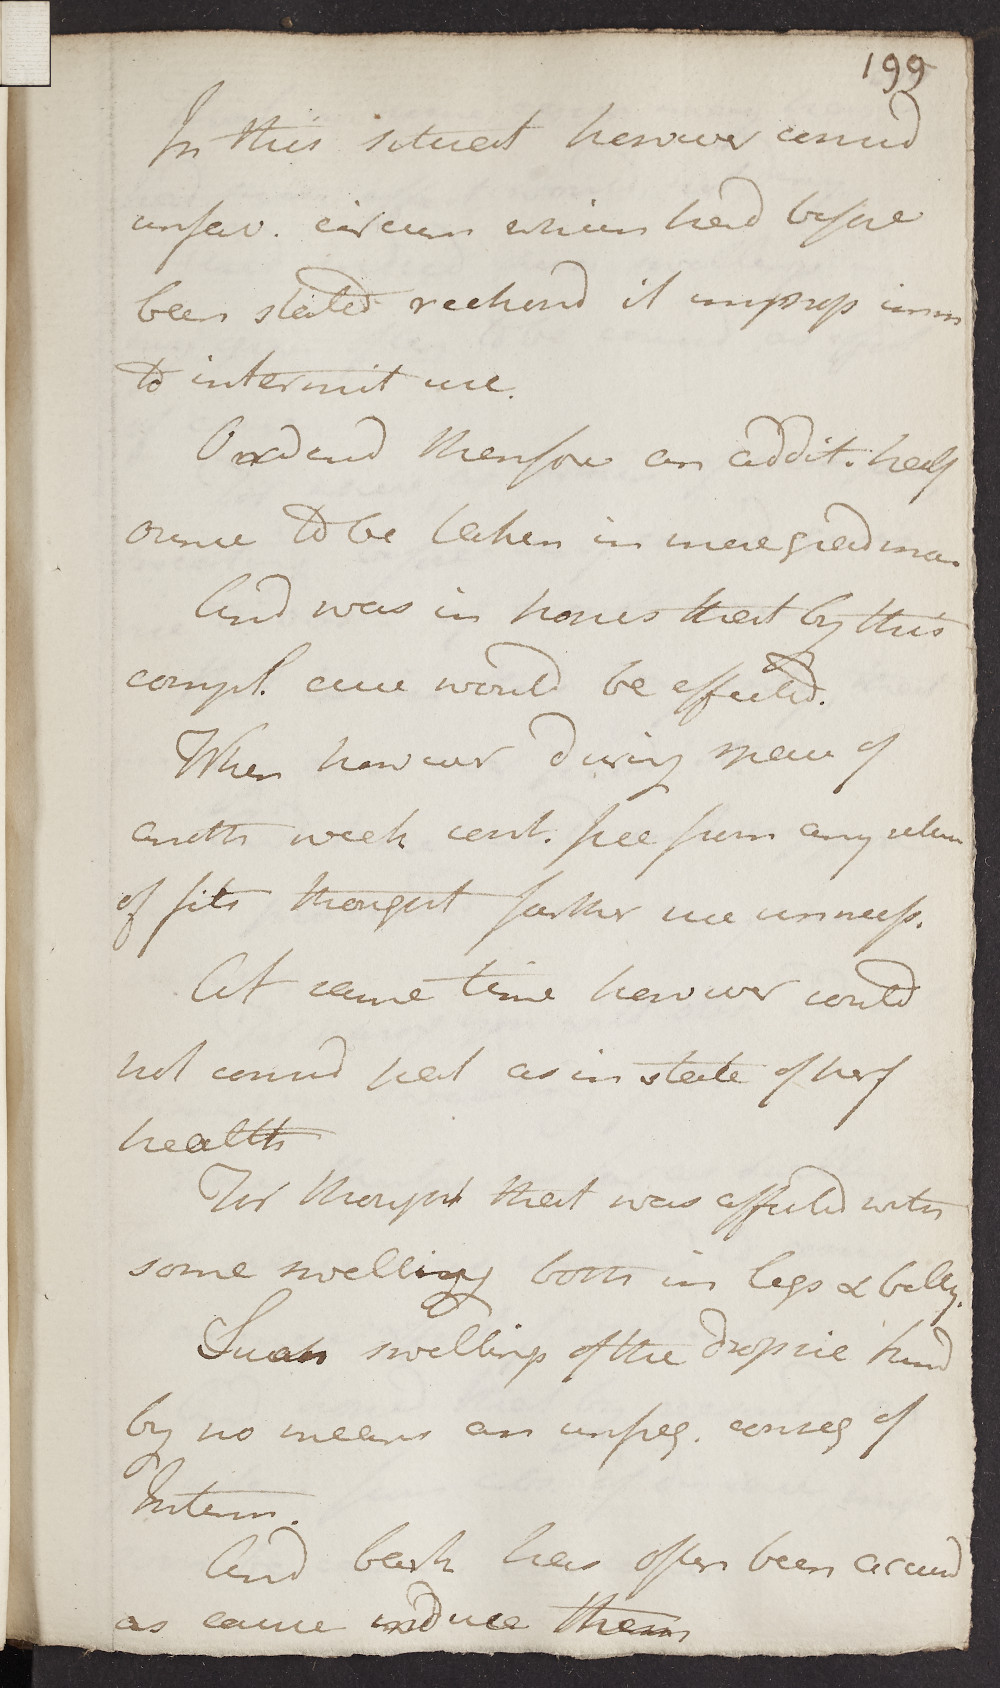 199
In this situat however consid
unfav. circum whicn had before
been stated reckond it improp imm
to intermit use.
Orderd therefore an addit. half
ounce to be taken in more grad man
And was in hopes that by this
compl. cure would be effected.
When however during space of
anoth week cont. free from any return
of fits thought farther use unnecess.
At same time however could
not consid pat as in state of perf
health
For thought that was affected with
some swelling both in legs & belly.
Such swellings of the dropsic kind
by no means an unfreq. conseq of
Interm.
And bark has often been accusd
as cause induce them